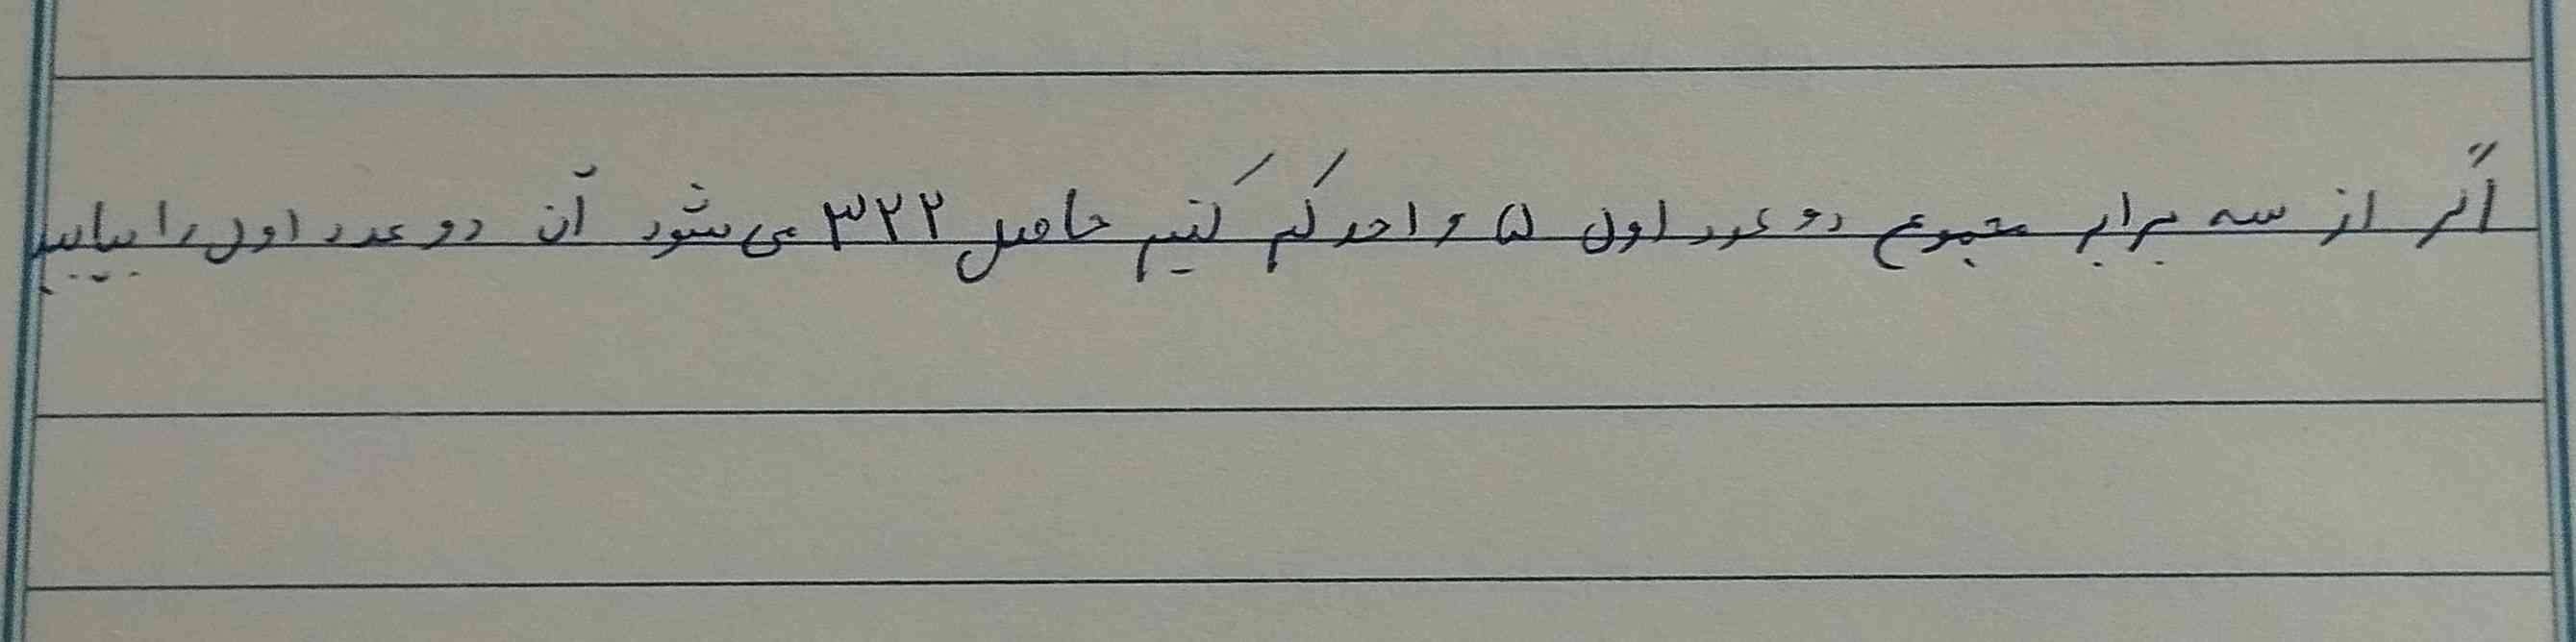 اگر از سه برابر مجموع دو عدد اول ۵ واحد کم کنیم حاصل ۳۲۲ می شود آن دو عدد اول را بیابید